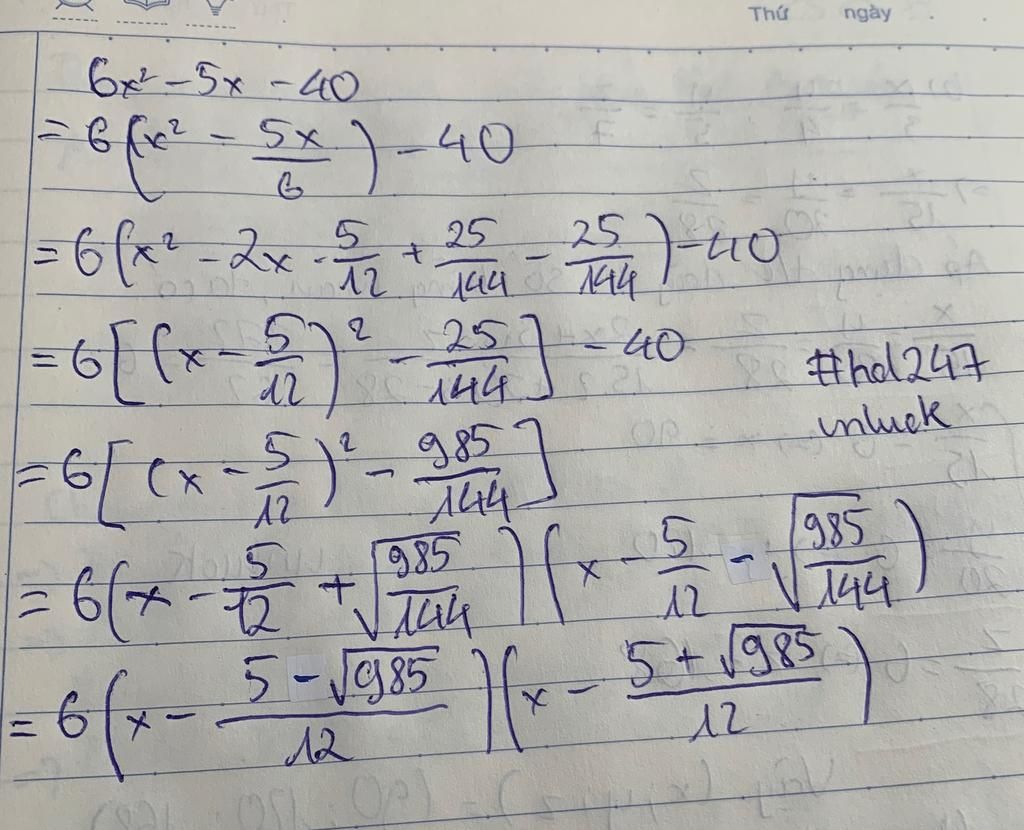 Thứ ngày . .
6x² - 5x - 40
= 6(x² - 5x/6) - 40
= 6(x² - 2x · 5/12 + 25/144 - 25/144) - 40
= 6[(x - 5/12)² - 25/144] - 40
#hd247
inluck
= 6[(x - 5/12)² - 985/144]
= 6(x - 5/12 + √(985/144))(x - 5/12 - √(985/144))
= 6(x - (5 - √985)/12)(x - (5 + √985)/12)